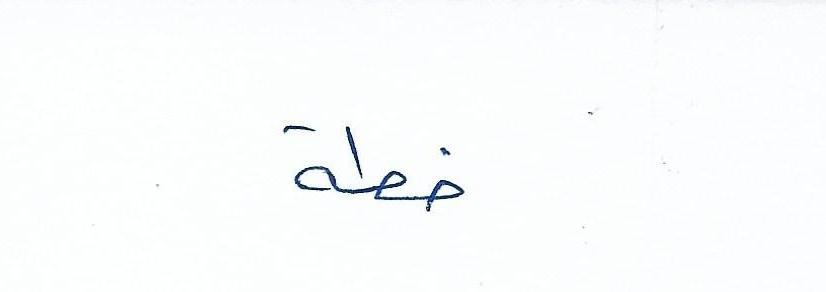 خطة